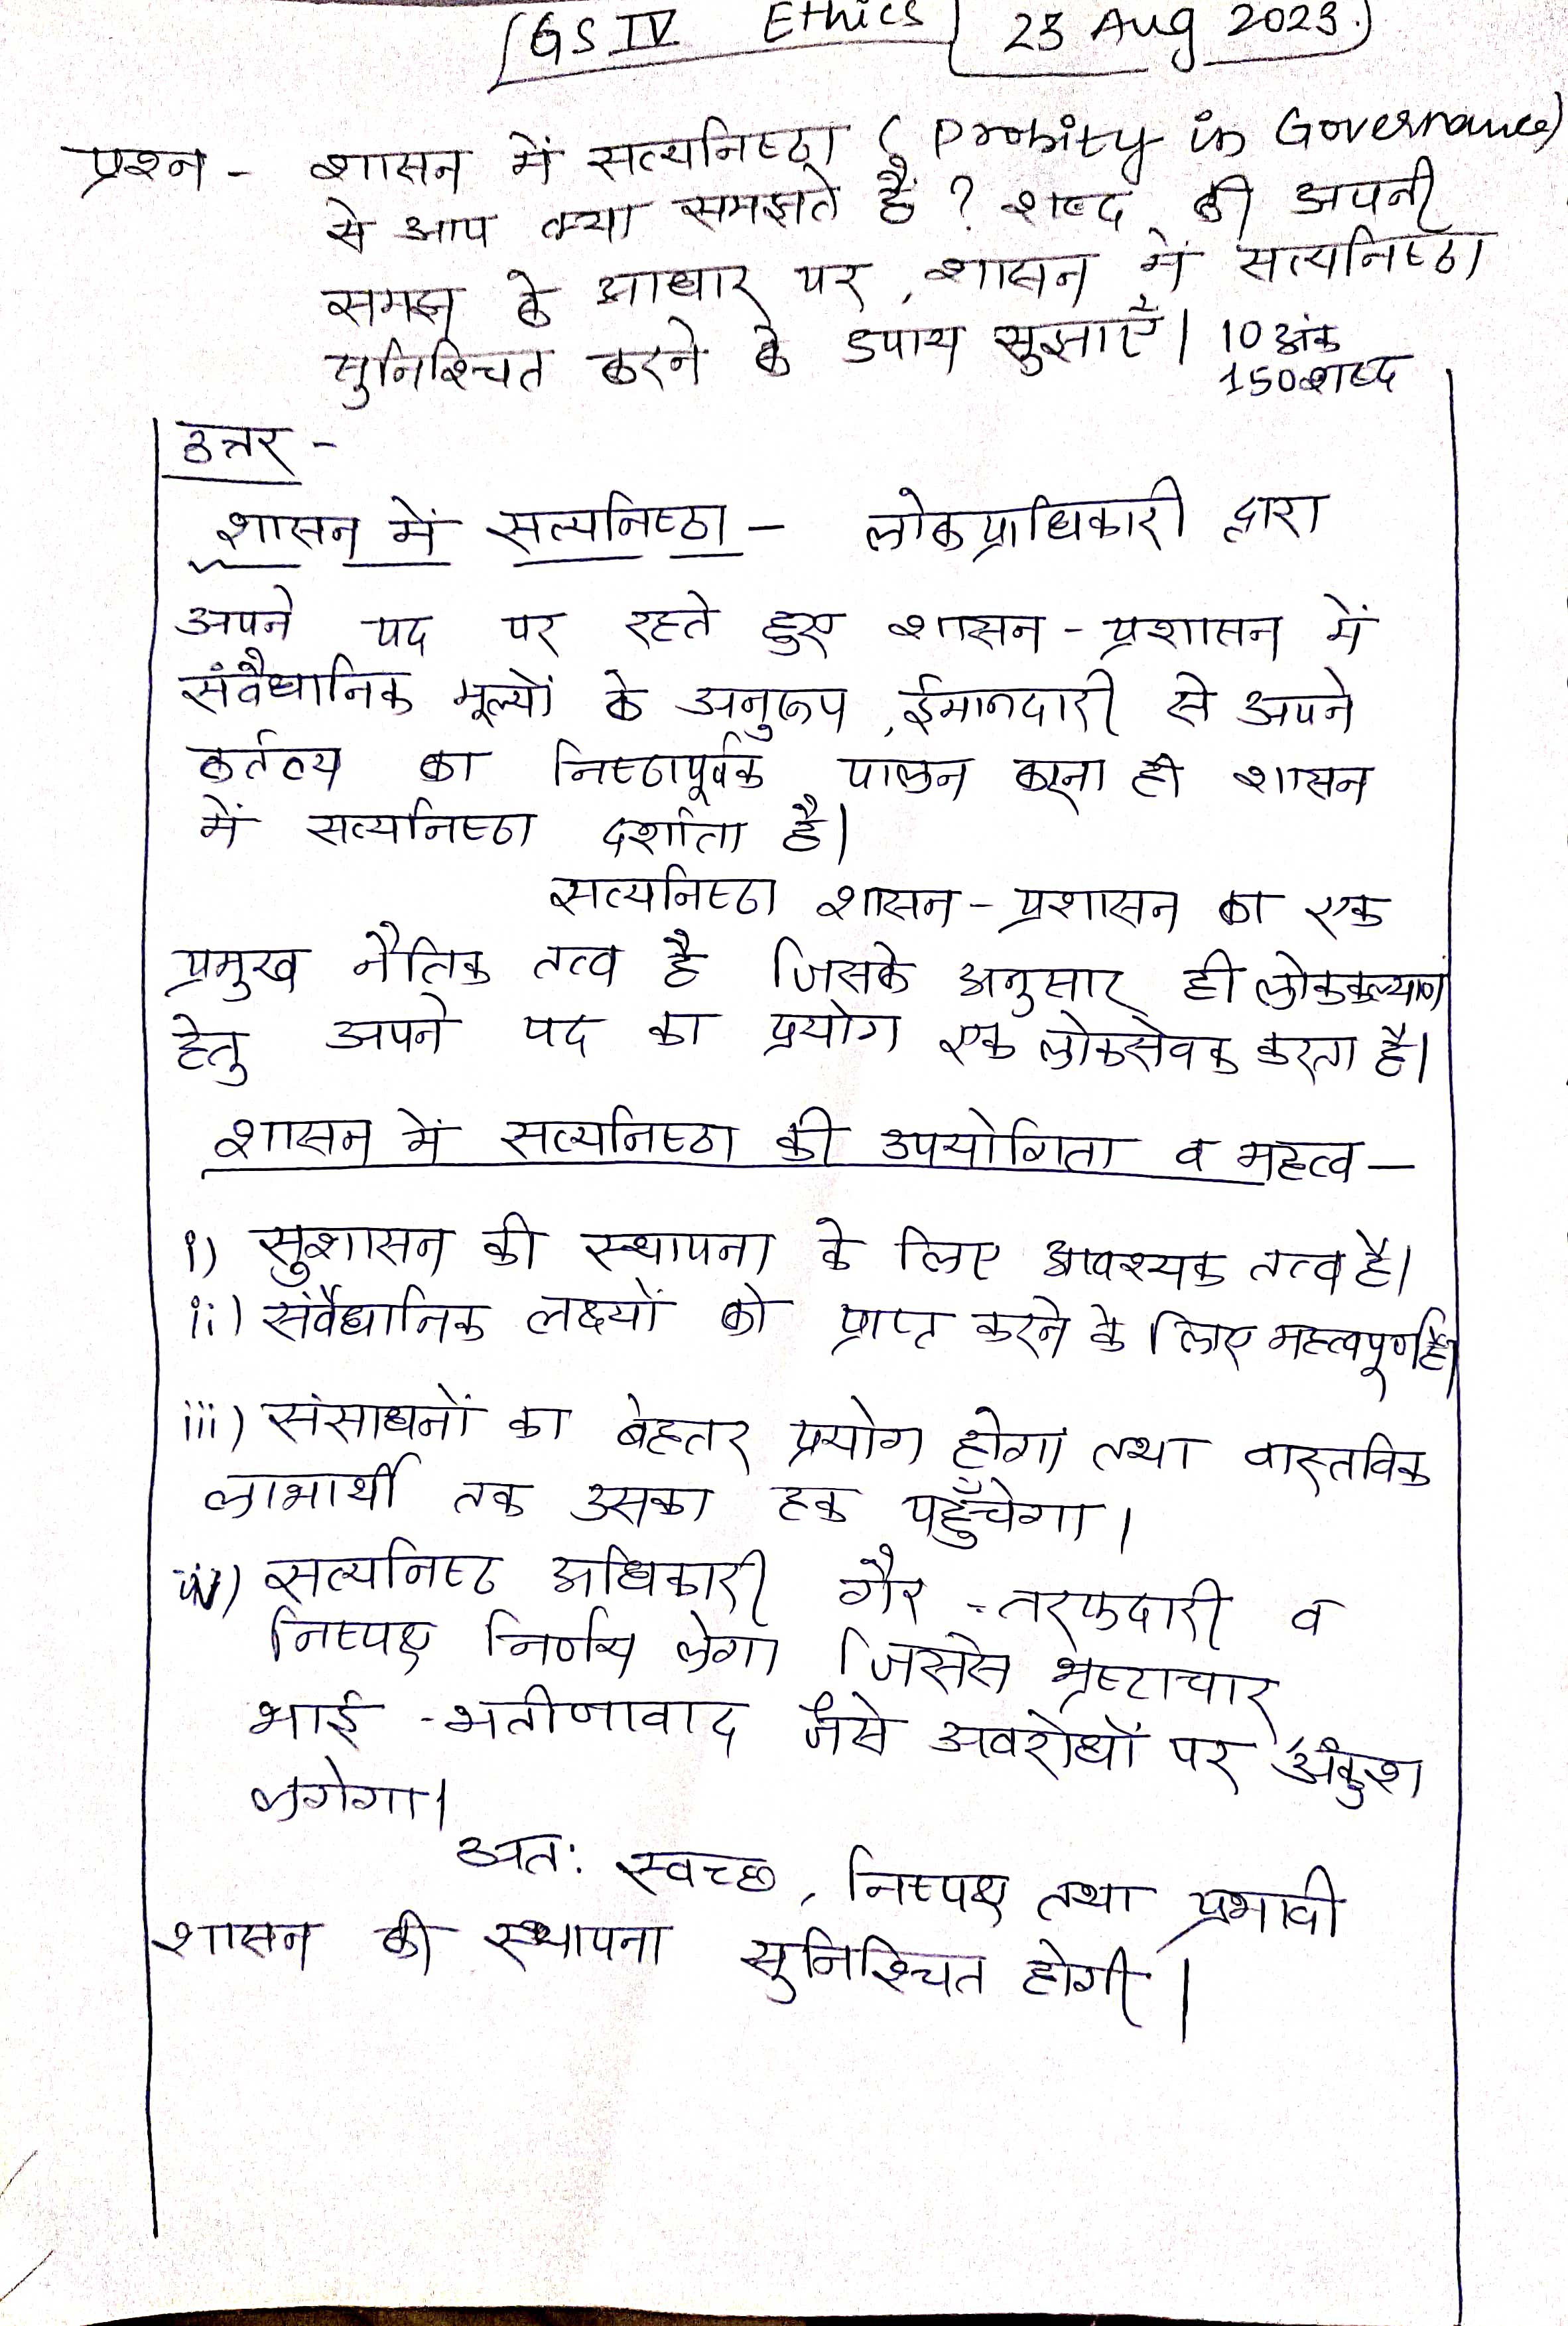 GS IV Ethics 23 Aug 2023.
प्रश्न - शासन में सत्यनिष्ठा (Probity in Governance)
से आप क्या समझते हैं ? शब्द की अपनी
समझ के आधार पर, शासन में सत्यनिष्ठा
सुनिश्चित करने के उपाय सुझाएँ। 10 अंक
150 शब्द
उत्तर -
शासन में सत्यनिष्ठा - लोकप्राधिकारी द्वारा
अपने पद पर रहते हुए शासन - प्रशासन में
संवैधानिक मूल्यों के अनुरूप, ईमानदारी से अपने
कर्तव्य का निष्ठापूर्वक पालन करना ही शासन
में सत्यनिष्ठा दर्शाता है।
सत्यनिष्ठा शासन - प्रशासन का एक
प्रमुख नैतिक तत्व है जिसके अनुसार ही लोककल्याण
हेतु अपने पद का प्रयोग एक लोकसेवक करता है।
शासन में सत्यनिष्ठा की उपयोगिता व महत्व -
i) सुशासन की स्थापना के लिए आवश्यक तत्व है।
ii) संवैधानिक लक्ष्यों को प्राप्त करने के लिए महत्वपूर्ण है।
iii) संसाधनों का बेहतर प्रयोग होगा तथा वास्तविक
लाभार्थी तक उसका हक पहुँचेगा।
iv) सत्यनिष्ठ अधिकारी गैर - तरफदारी व
निष्पक्ष निर्णय लेगा जिससे भ्रष्टाचार
भाई - भतीजावाद जैसे अवरोधों पर अंकुश
लगेगा।
अतः स्वच्छ, निष्पक्ष तथा प्रभावी
शासन की स्थापना सुनिश्चित होगी।